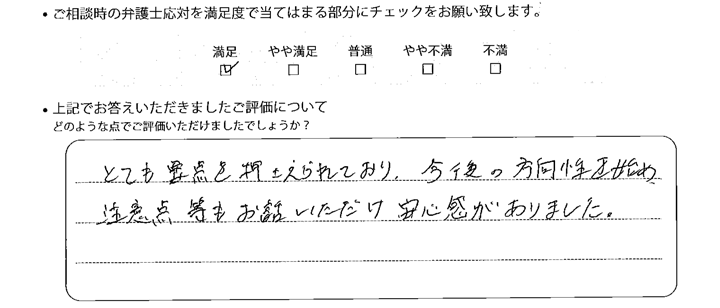 • ご相談時の弁護士応対を満足度で当てはまる部分にチェックをお願い致します。
満足 やや満足 普通 やや不満 不満
☑ □ □ □ □
• 上記でお答えいただきましたご評価について
どのような点でご評価いただけましたでしょうか？
とても要点を押さえられており、今後の方向性を始め
注意点等もお話いただけ安心感がありました。